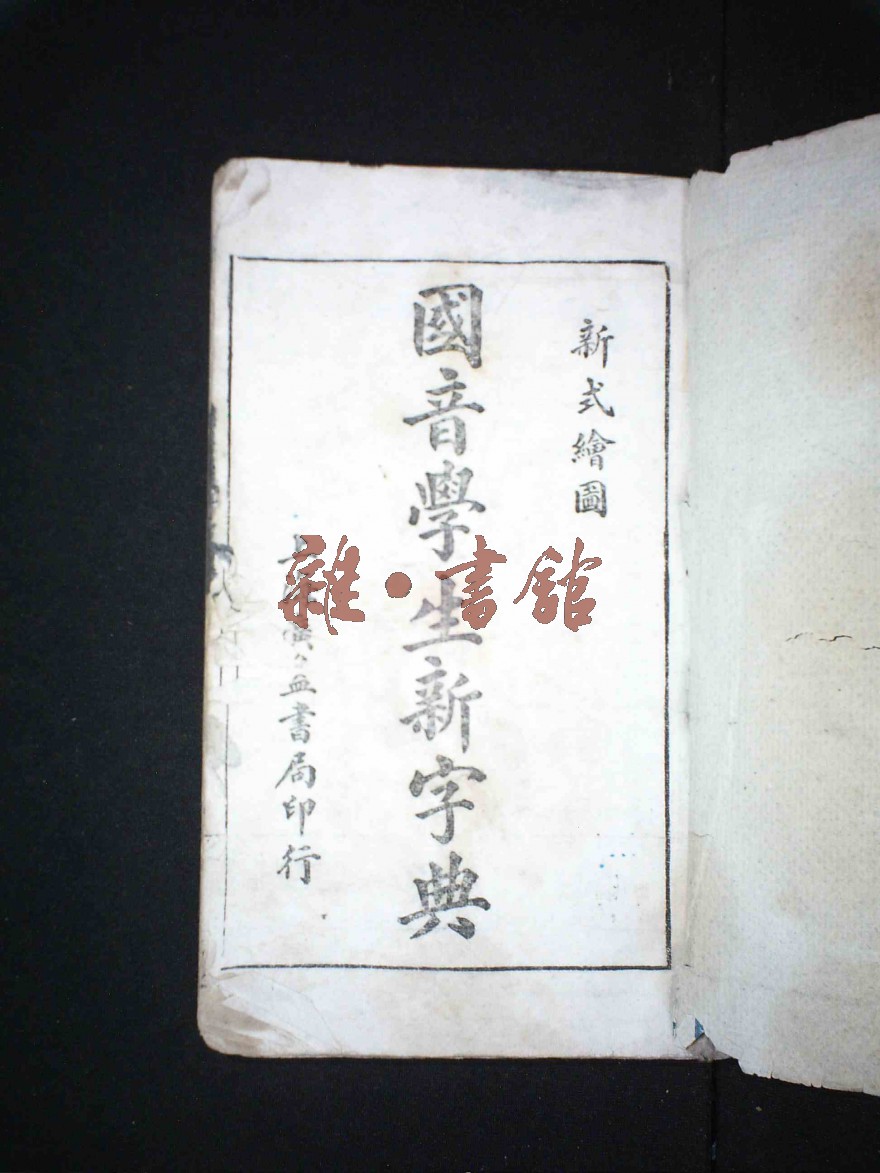 新式繪圖
國音學生新字典
益書局印行
雜·書舘